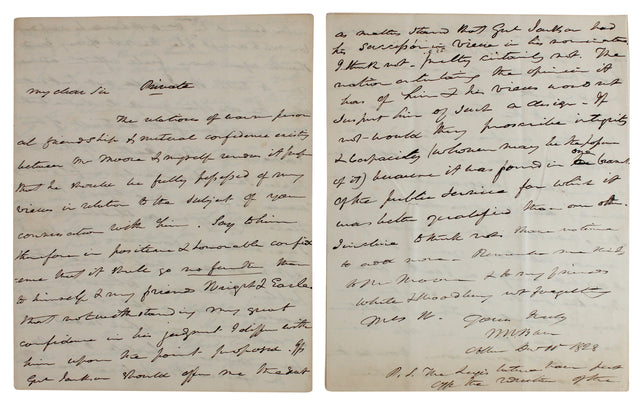 Private
My dear Sir
The relations of warm person
al friendship & mutual confidence existing
between Mr Moore & myself render it proper
that he should be fully possessed of my
views in relation to the subject of your
conversation with him. Say to him
therefore in positive & honorable confid
ence that it shall go no further than
to himself & my friend Wright &
that notwithstanding my great
confidence in his judgment I differ with
him upon the point proposed. If
Genl Jackson should offer me the
as matters stand that Genl Jackson had
his succession in view in his nomination
I think not - pretty certainly not. The
nation entertaining the opinion it
has of him & his views would not
suspect him of such a design - If
not - would they proscribe integrity
& capacity (whoever may be the possessor
of it) because it was found in one branch
of the public service for which it
was better qualified than any other.
I incline to think not. I have not time
to add more - Remember me kindly
to Mr Moore & to my friends
White & Woodbury not forgetting
Mrs W. Yours truly
MVBuren
1828
P.S. The Legislature have just